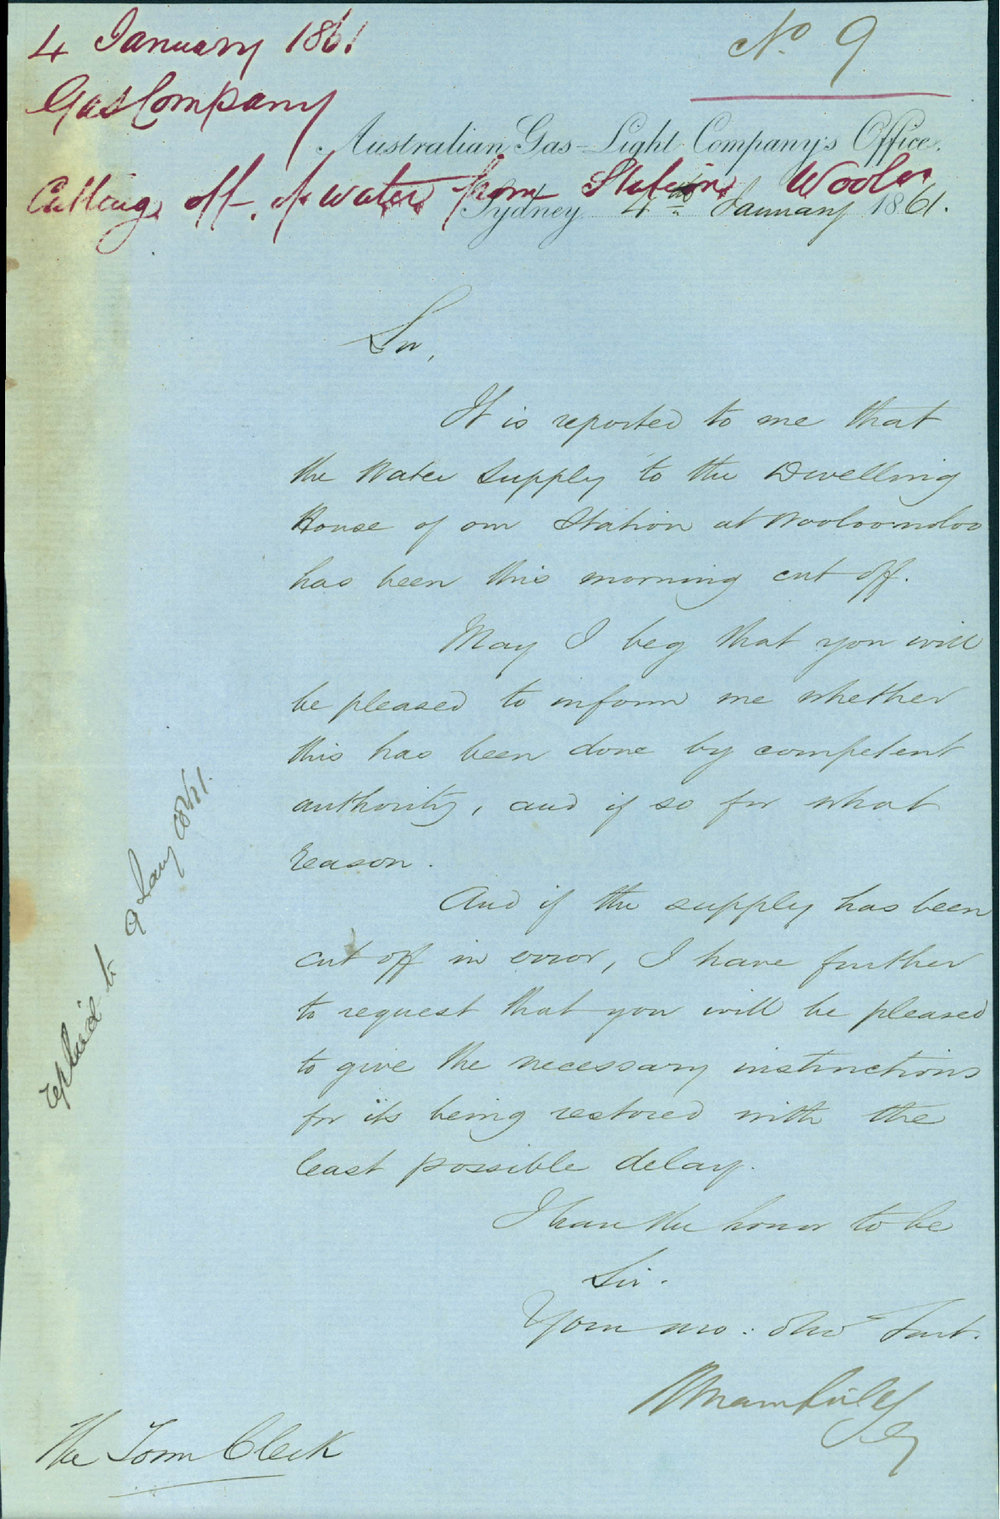 4 January 1861
No 9
Gas Company
Australian Gas-Light Company's Office,
Cutting off of water from Station Wooloo
Sydney 4th January 1861.
Sir,
It is reported to me that
the Water Supply to the Dwelling
House of our Station at Wooloomoloo
has been this morning cut off.
May I beg that you will
be pleased to inform me whether
this has been done by competent
authority, and if so for what
reason.
And if the supply has been
cut off in error, I have further
to request that you will be pleased
to give the necessary instructions
for its being restored with the
least possible delay.
I have the honor to be
Sir.
Your mo: obt Servt.
Secy
The Town Clerk
replied to 9 Jany 1861.